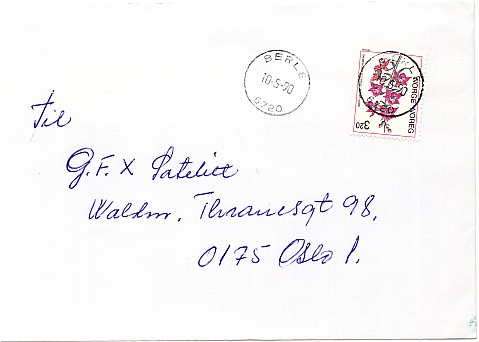 BERLE
10-5-90
6720
BERLE
10-5-90
6720
NORGE NOREG
320
Til
G.F. X Satelitt
Waldm. Thranesgt 98,
0175 Oslo 1.